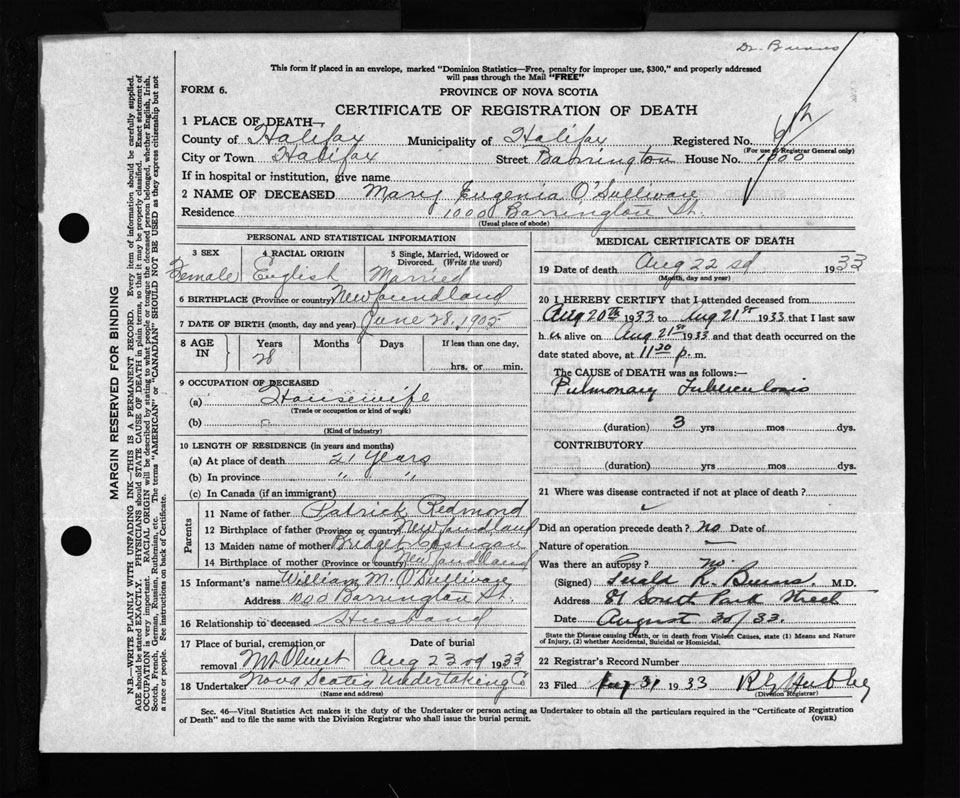 Dr. Burns
This form if placed in an envelope, marked "Dominion Statistics—Free, penalty for improper use, $300," and properly addressed
will pass through the Mail "FREE"
FORM 6.
PROVINCE OF NOVA SCOTIA
CERTIFICATE OF REGISTRATION OF DEATH
1 PLACE OF DEATH—
County of Halifax Municipality of Halifax Registered No.
(For use of Registrar General only)
City or Town Halifax Street Barrington House No. 1000
If in hospital or institution, give name
2 NAME OF DECEASED Mary Eugenia O'Sullivan
Residence 1000 Barrington St.
(Usual place of abode)
PERSONAL AND STATISTICAL INFORMATION
3 SEX 4 RACIAL ORIGIN 5 Single, Married, Widowed or
Divorced. (Write the word)
Female English Married
6 BIRTHPLACE (Province or country) Newfoundland
7 DATE OF BIRTH (month, day and year) June 28, 1905
8 AGE IN Years Months Days If less than one day,
28 hrs. or min.
9 OCCUPATION OF DECEASED
(a) Housewife
(Trade or occupation or kind of work)
(b)
(Kind of industry)
10 LENGTH OF RESIDENCE (in years and months)
(a) At place of death 21 Years
(b) In province " "
(c) In Canada (if an immigrant)
Parents
11 Name of father Patrick Redmond
12 Birthplace of father (Province or country) Newfoundland
13 Maiden name of mother Bridget
14 Birthplace of mother (Province or country) Newfoundland
15 Informant's name William M. O'Sullivan
Address 1000 Barrington St.
16 Relationship to deceased Husband
17 Place of burial, cremation or Date of burial
removal Mt Olivet Aug 23rd 1933
18 Undertaker Nova Scotia Undertaking Co
(Name and address)
MEDICAL CERTIFICATE OF DEATH
19 Date of death Aug 22 sd 1933
(Month, day and year)
20 I HEREBY CERTIFY that I attended deceased from
Aug 20th 1933 to Aug 21st 1933 that I last saw
h er alive on Aug 21st 1933 and that death occurred on the
date stated above, at 11 30 p. m.
The CAUSE OF DEATH was as follows:—
Pulmonary Tuberculosis
(duration) 3 yrs mos dys.
CONTRIBUTORY
(duration) yrs. mos. dys.
21 Where was disease contracted if not at place of death?
Did an operation precede death? no Date of
Nature of operation —
Was there an autopsy? no.
(Signed) Gerald R. Burns. M.D.
Address 81 South Park Street
Date August 30/33.
State the Disease causing Death, or in death from Violent Causes, state (1) Means and Nature
of Injury, (2) whether Accidental, Suicidal or Homicidal.
22 Registrar's Record Number
23 Filed Aug 31 1933
(Division Registrar)
Sec. 46—Vital Statistics Act makes it the duty of the Undertaker or person acting as Undertaker to obtain all the particulars required in the "Certificate of Registration
of Death" and to file the same with the Division Registrar who shall issue the burial permit.
(OVER)
MARGIN RESERVED FOR BINDING
N.B.—WRITE PLAINLY WITH UNFADING INK—THIS IS A PERMANENT RECORD. Every item of information should be carefully supplied.
AGE should be stated EXACTLY. PHYSICIANS should STATE CAUSE OF DEATH in plain terms, so that it may be properly classified. Exact statement of
OCCUPATION is very important. RACIAL ORIGIN will be described by stating to what people or tongue the deceased person belonged, whether English, Irish,
Scotch, French, German, Russian, Ruthenian, etc. The terms "AMERICAN" or "CANADIAN" SHOULD NOT BE USED as they express citizenship but not
a race or people. See instructions on back of Certificate.